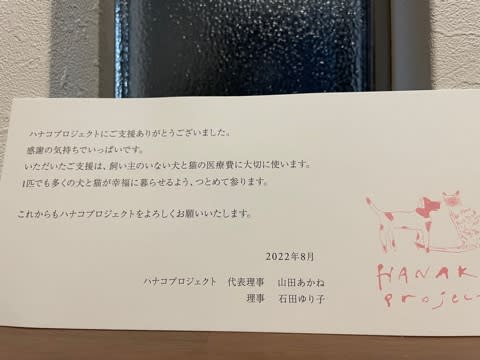 ハナコプロジェクトにご支援ありがとうございました。
感謝の気持ちでいっぱいです。
いただいたご支援は、飼い主のいない犬と猫の医療費に大切に使います。
1匹でも多くの犬と猫が幸福に暮らせるよう、つとめて参ります。
これからもハナコプロジェクトをよろしくお願いいたします。
2022年8月
ハナコプロジェクト 代表理事 山田あかね
理事 石田ゆり子
HANAK
projec